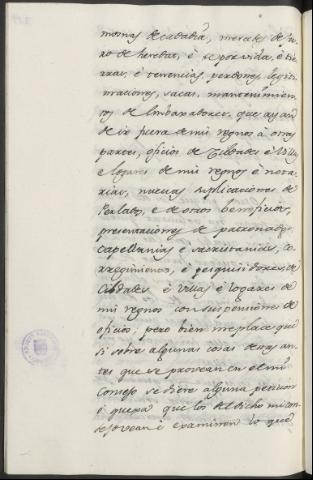 mosnas de cada dia, merceds de ju-
ro de heredad, é de por vida, é tie-
rras, é tenencias, perdones, legiti-
maciones, sacas, mantenimien-
tos de Embaxadores, que ayan
de ir fuera de mis regnos á otras
partes, oficios de Cibdades é Villas
e logares de mis regnos é nota-
rias, nuevas suplicaciones de
Perlados, e de otros beneficios,
presentaciones de patronadgo,
capellanias é sacristanias, co-
rregimientos, é pesquisidores de
Cibdades é villas é logares de
mis regnos con suspensiones de
oficios; pero bien me place que
si sobre algunas cosas destas an-
tes que se provean en el mi
Consejo se diere alguna peticion
ó quexa que los del dicho mi con-
sejo vean é examinen lo que